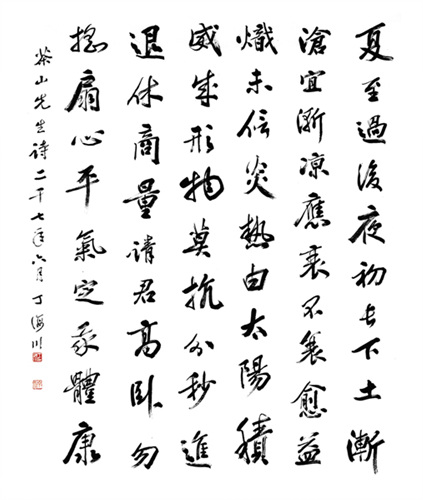 夏至過後夜初長下土漸
滄宜漸凉應衰不衰愈益
熾未信炎熱由太陽積
威成形物莫抗分秒進
退休商量請君高臥勿
搖扇心平氣定體康
茶山先生詩二千七年六月丁海川